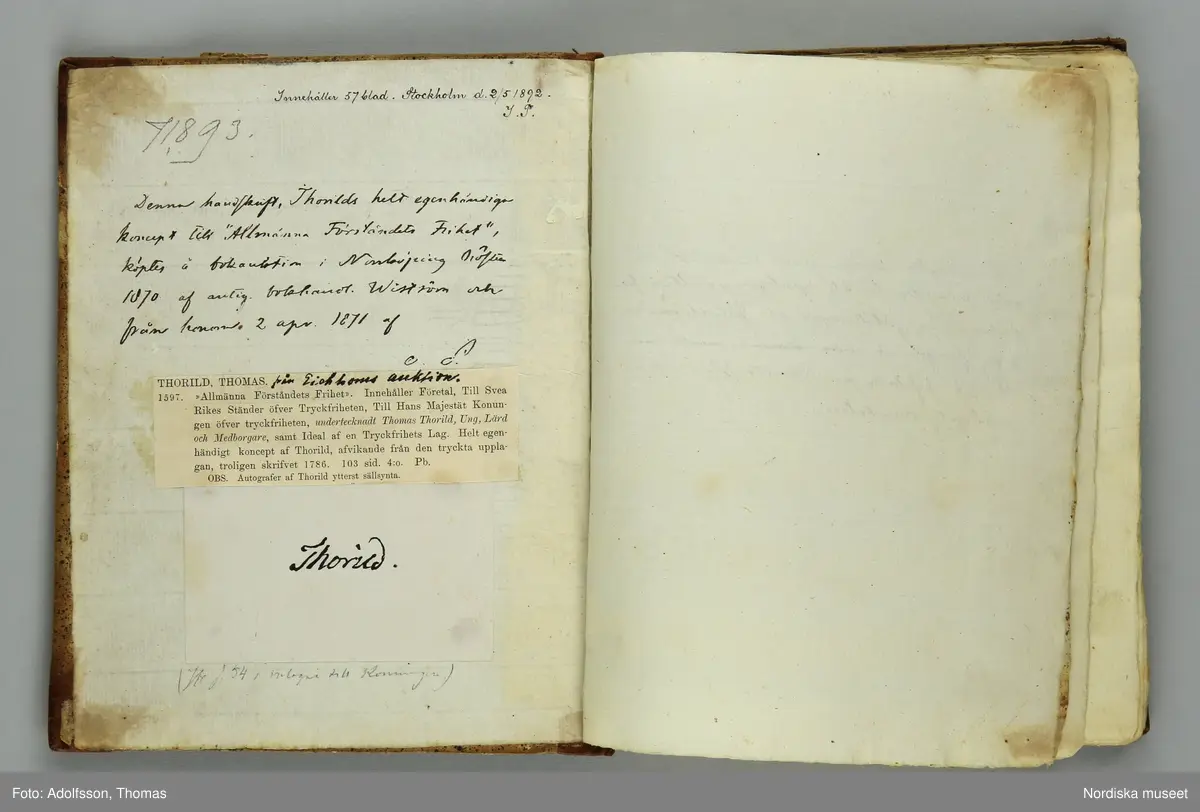 Innehåller 57 blad. Stockholm d. 2/5 1892.
1893.
Denna handskrift, Thorilds helt egenhändiga
koncept till "Allmänna Förståndets Frihet",
köptes å bokauktion i Norrköping
1870 af antiq. bokhandl. Wiström och
från honom 2 apr. 1871 af
THORILD, THOMAS. från Eichhorns auktion.
1597. »Allmänna Förståndets Frihet». Innehåller Företal, Till Svea
Rikes Ständer öfver Tryckfriheten, Till Hans Majestät Konun-
gen öfver tryckfriheten, undertecknadt Thomas Thorild, Ung, Lärd
och Medborgare, samt Ideal af en Tryckfrihets Lag. Helt egen-
händigt koncept af Thorild, afvikande från den tryckta uppla-
gan, troligen skrifvet 1786. 103 sid. 4:o. Pb.
OBS. Autografer af Thorild ytterst sällsynta.
Thorild.
54 till Konungen.)
Foto: Adolfsson, Thomas
Nordiska museet